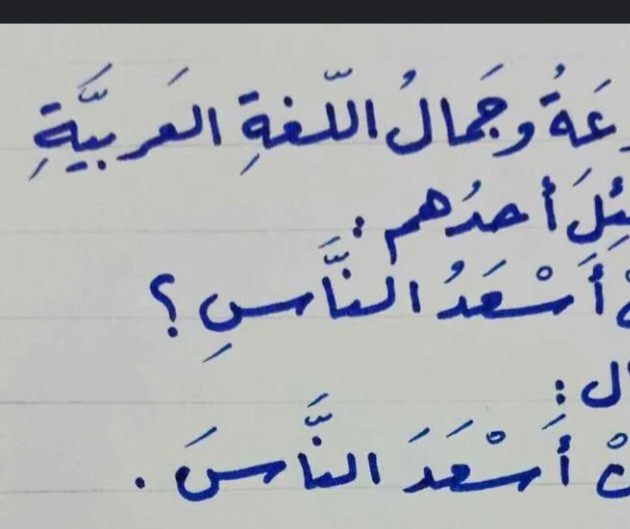 وجَمالُ اللّغةِ العَربيَّةِ
أحدُهم :
أَسْعَدُ النَّاسِ ؟
:
أَسْعَدَ النَّاسَ .